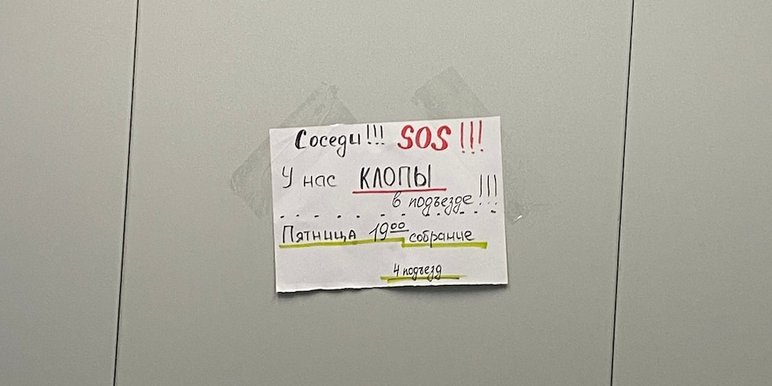 Соседи!!! SOS!!!
У нас КЛОПЫ
в подъезде!!!
Пятница 19⁰⁰ собрание
4 подъезд